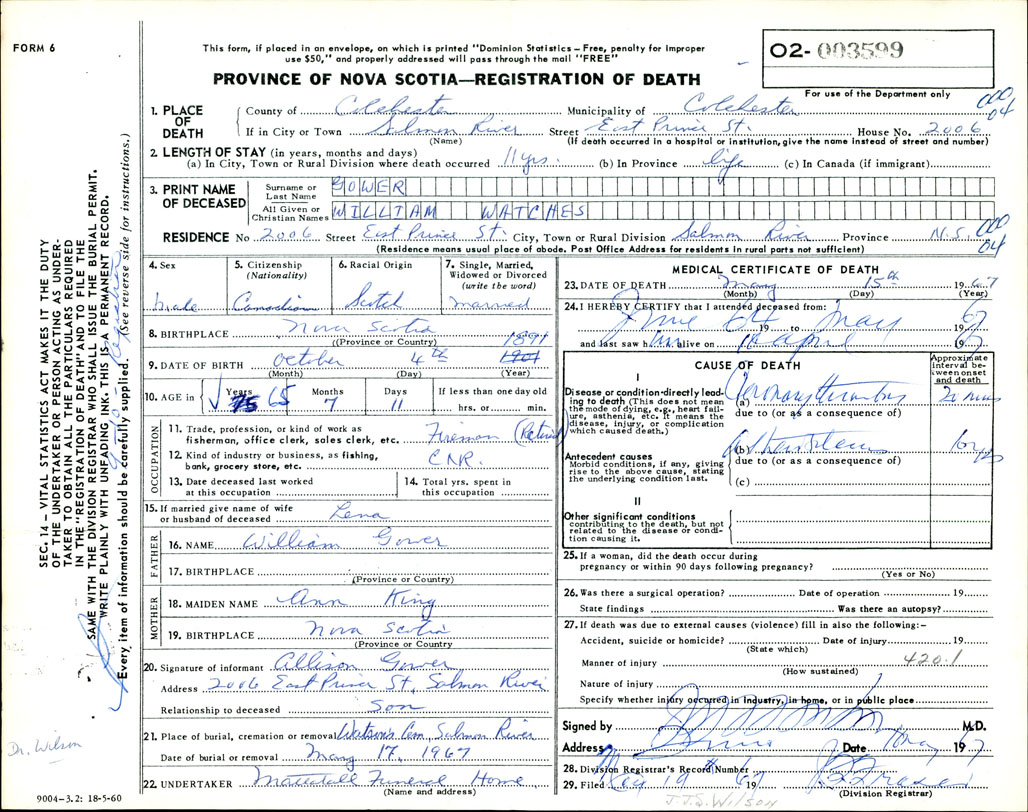 FORM 6
This form, if placed in an envelope, on which is printed "Dominion Statistics – Free, penalty for improper
use $50," and properly addressed will pass through the mail "FREE"
02-003599
PROVINCE OF NOVA SCOTIA—REGISTRATION OF DEATH
For use of the Department only
1. PLACE OF DEATH
County of Colchester Municipality of Colchester
000 04
If in City or Town Salmon River Street East Prince St. House No. 2006
(Name) (If death occurred in a hospital or institution, give the name instead of street and number)
2. LENGTH OF STAY (in years, months and days)
(a) In City, Town or Rural Division where death occurred 11 yrs. (b) In Province life (c) In Canada (if immigrant)
3. PRINT NAME OF DECEASED
Surname or Last Name GOWER
All Given or Christian Names WILLIAM WATCHES
RESIDENCE No 2006 Street East Prince St. City, Town or Rural Division Salmon River Province N.S.
000 04
(Residence means usual place of abode. Post Office Address for residents in rural parts not sufficient)
4. Sex male
5. Citizenship (Nationality) Canadian
6. Racial Origin Scotch
7. Single, Married, Widowed or Divorced (write the word) married
8. BIRTHPLACE Nova Scotia
(Province or Country)
1891
9. DATE OF BIRTH October 4th 1901
(Month) (Day) (Year)
10. AGE in Years 75 65 Months 7 Days 11 If less than one day old hrs. or min.
OCCUPATION
11. Trade, profession, or kind of work as
fisherman, office clerk, sales clerk, etc. Fireman (Retired)
12. Kind of industry or business, as fishing,
bank, grocery store, etc. CNR.
13. Date deceased last worked at this occupation
14. Total yrs. spent in this occupation
15. If married give name of wife
or husband of deceased Lena
FATHER
16. NAME William Gower
17. BIRTHPLACE
(Province or Country)
MOTHER
18. MAIDEN NAME Ann King
19. BIRTHPLACE Nova Scotia
(Province or Country
20. Signature of informant Allison Gower
Address 2006 East Prince St, Salmon River
Relationship to deceased Son
21. Place of burial, cremation or removal Watson's Cem, Salmon River
Date of burial or removal May 17, 1967
22. UNDERTAKER Mattatall Funeral Home
(Name and address)
MEDICAL CERTIFICATE OF DEATH
23. DATE OF DEATH May 15th 1967
(Month) (Day) (Year)
24. I HEREBY CERTIFY that I attended deceased from:
June 64 19 to May 1967
and last saw him alive on 10 April 1967
CAUSE OF DEATH
Approximate interval between onset and death
I
Disease or condition directly leading to death (This does not mean the mode of dying, e.g., heart failure, asthenia, etc. It means the disease, injury, or complication which caused death.)
(a) Coronary thrombosis 20 mins
due to (or as a consequence of)
Antecedent causes
Morbid conditions, if any, giving rise to the above cause, stating the underlying condition last.
(b)
due to (or as a consequence of)
(c)
II
Other significant conditions
contributing to the death, but not related to the disease or condition causing it.
25. If a woman, did the death occur during
pregnancy or within 90 days following pregnancy?
(Yes or No)
26. Was there a surgical operation? Date of operation 19
State findings Was there an autopsy?
27. If death was due to external causes (violence) fill in also the following:–
Accident, suicide or homicide? Date of injury 19
(State which)
420.1
Manner of injury
(How sustained)
Nature of injury
Specify whether injury occurred in industry, in home, or in public place
Signed by M.D.
Address Truro Date May 1967
28. Division Registrar's Record Number
29. Filed May 19 67
(Division Registrar)
J.J.S. Wilson
SEC. 14 – VITAL STATISTICS ACT MAKES IT THE DUTY
OF THE UNDERTAKER OR PERSON ACTING AS UNDER-
TAKER TO OBTAIN ALL THE PARTICULARS REQUIRED
IN THE "REGISTRATION OF DEATH" AND TO FILE THE
SAME WITH THE DIVISION REGISTRAR WHO SHALL ISSUE THE BURIAL PERMIT.
WRITE PLAINLY WITH UNFADING INK. THIS IS A PERMANENT RECORD.
Every item of information should be carefully supplied. (See reverse side for instructions.)
Dr. Wilson
9004–3.2: 18-5-60